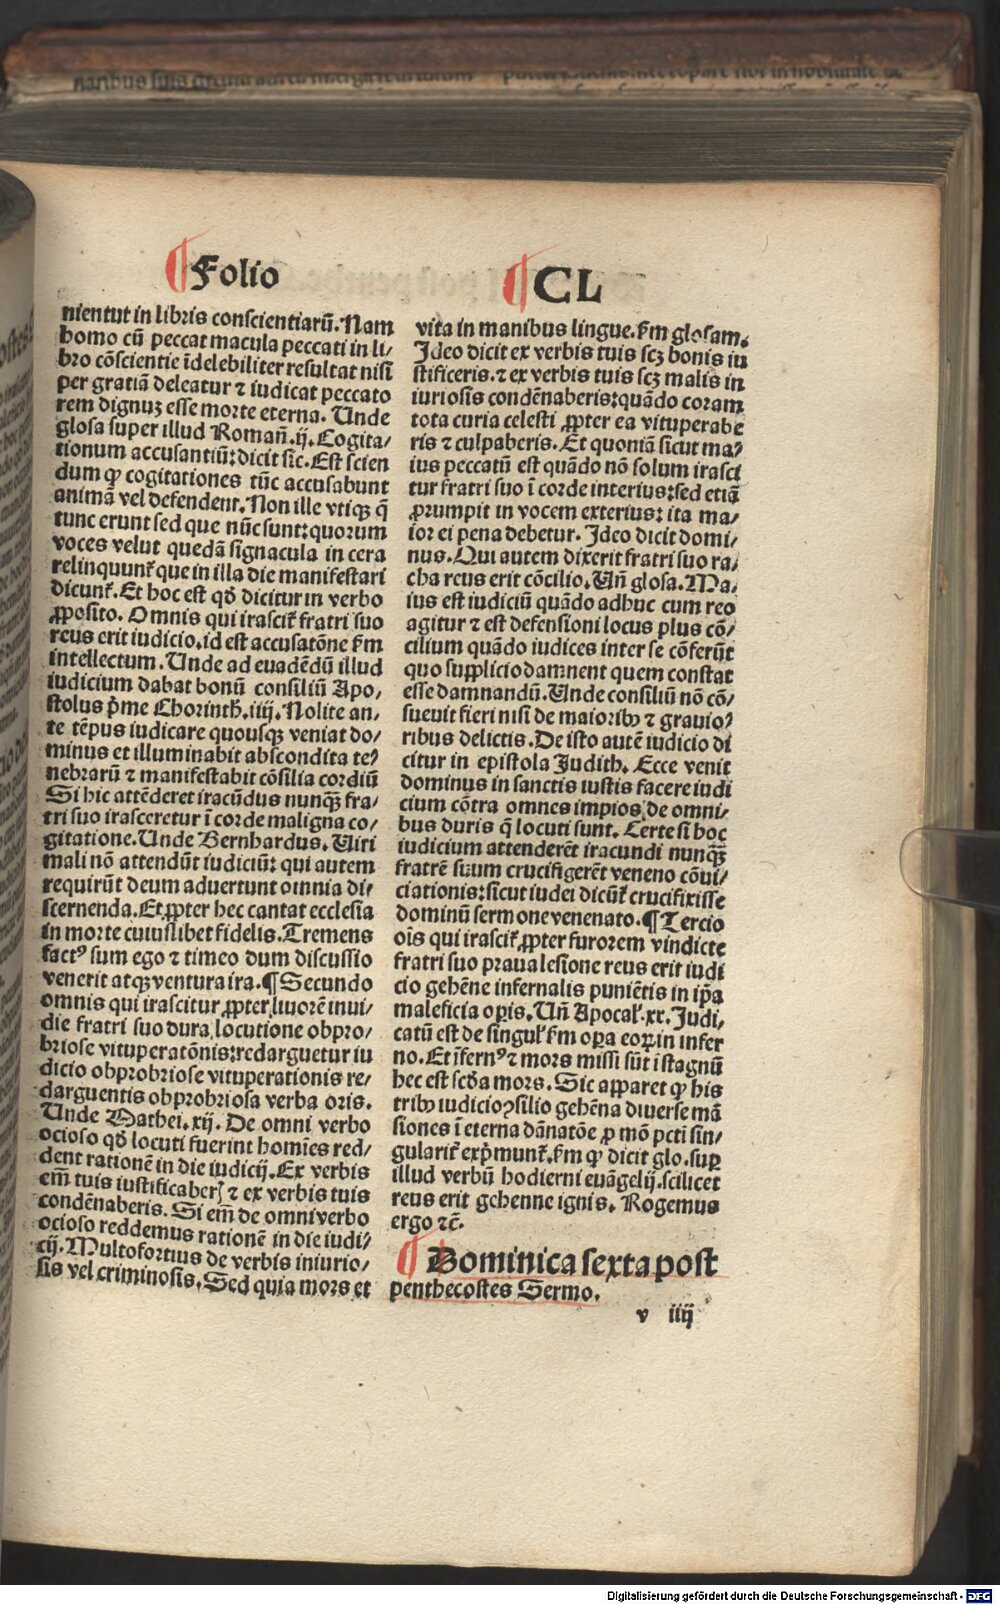 Folio CL
nientut in libris conscientiarū. Nam
homo cū peccat macula peccati in li/
bro cōscientie īdelebiliter resultat nisi
per gratiā deleatur ⁊ iudicat peccato
rem dignuʒ esse morte eterna. Unde
glosa super illud Romañ.ij. Cogita/
tionum accusantiū: dicit sic. Est scien
dum ꝙ cogitationes tūc accusabunt
animā vel defendent. Non ille vtiqꝫ q̄
tunc erunt sed que nūc sunt: quorum
voces velut quedā signacula in cera
relinquunt᷑ que in illa die manifestari
dicunt᷑. Et hoc est qd̄ dicitur in verbo
ꝓposito. Omnis qui irascit᷑ fratri suo
reus erit iudicio. id est accusatōne ẜm
intellectum. Unde ad euadēdū illud
iudicium dabat bonū consiliū Apo/
stolus p̄me Chorinth. iiij. Nolite an/
te tēpus iudicare quousqꝫ veniat do/
minus et illuminabit abscondita te/
nebrarū ⁊ manifestabit cōsilia cordiū
Si hic attēderet iracūdus nunqꝫ̄ fra/
tri suo irasceretur ī corde maligna co/
gitatione. Unde Bernhardus. Uiri
mali nō attendūt iudiciū: qui autem
requirūt deum aduertunt omnia di/
scernenda. Et ꝓpter hec cantat ecclesia
in morte cuiuslibet fidelis. Tremens
factꝰ sum ego ⁊ timeo dum discussio
venerit atqꝫ ventura ira. ¶ Secundo
omnis qui irascitur ꝓpter liuorē inui/
die fratri suo dura locutione obpro/
briose vituperatōnis: redarguetur iu
dicio obprobriose vituperationis re/
darguentis obprobriosa verba oris.
Unde Mathei. xij. De omni verbo
ocioso qd̄ locuti fuerint homīes red/
dent rationē in die iudicij. Ex verbis
em̄ tuis iustificaberꝭ ⁊ ex verbis tuis
condēnaberis. Si em̄ de omni verbo
ocioso reddemus rationē in die iudi/
cij. Multofortius de verbis iniurio/
sis vel criminosis. Sed quia mors et
vita in manibus lingue. ẜm glosam.
Ideo dicit ex verbis tuis scʒ bonis iu
stificeris. ⁊ ex verbis tuis scʒ malis in
iuriosis condēnaberis: quādo coram
tota curia celesti ꝓpter ea vituperabe
ris ⁊ culpaberis. Et quoniā sicut ma/
ius peccatū est quādo nō solum irasci
tur fratri suo ī corde interius: sed etiā
ꝓrumpit in vocem exterius: ita ma/
ior ei pena debetur. Ideo dicit domi/
nus. Qui autem dixerit fratri suo ra/
cha reus erit cōcilio. Uñ glosa. Ma/
ius est iudiciū quādo adhuc cum reo
agitur ⁊ est defensioni locus plus cō/
cilium quādo iudices inter se cōferūt
quo supplicio damnent quem constat
esse damnandū. Unde consiliū nō cō/
sueuit fieri nisi de maioribꝫ ⁊ grauio/
ribus delictis. De isto autē iudicio di
citur in epistola Judith. Ecce venit
dominus in sanctis iustis facere iudi
cium cōtra omnes impios de omni/
bus duris q̄ locuti sunt. Certe si hoc
iudicium attenderēt iracundi nunqꝫ̄
fratrē suum crucifigerēt veneno cōui/
ciationis: sicut iudei dicūt᷑ crucifixisse
dominū sermone venenato. ¶ Tercio
oīs qui irascit᷑ ꝓpter furorem vindicte
fratri suo praua lesione reus erit iudi
cio gehēne infernalis puniētis in ip̄a
maleficia oꝑis. Uñ Apocal᷑. xx. Judi/
catū est de singul᷑ ẜm oꝑa eoꝝ in infer
no. Et īfernꝰ ⁊ mors missi sūt ī stagnū
hec est scd̄a mors. Sic apparet ꝙ his
tribꝫ iudicio ꝯsilio gehēna diuerse mā
siones ī eterna dānatōe ꝓ mō pcti sin/
gularit᷑ exp̄munt᷑. ẜm ꝙ dicit glo. suꝑ
illud verbū hodierni euāgelij. scilicet
reus erit gehenne ignis. Rogemus
ergo ⁊c̄.
Dominica sexta post
penthecostes Sermo.
v iiij
Digitalisierung gefördert durch die Deutsche Forschungsgemeinschaft - DFG